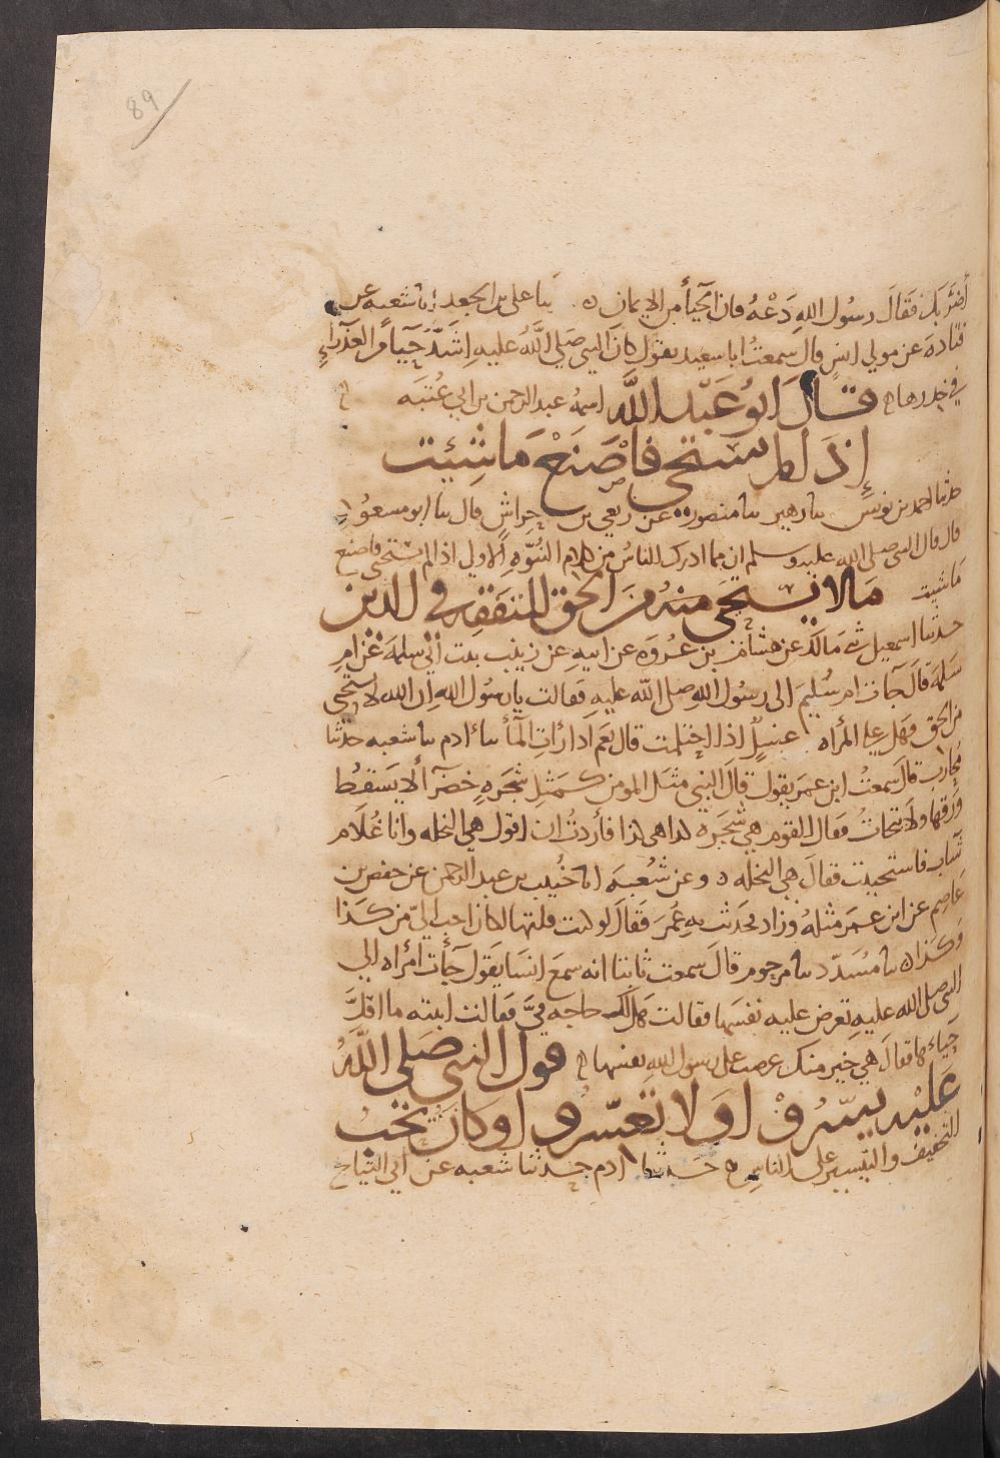 89
أضرّ بك فقال رسول الله دعه فان الحيأ من الايمان ه ثنا على بن الجعد انا شعبه عن
قتادة عن مولي انس قال سمعت ابا سعيد يقول كان النبي صلي الله عليه اشد حياء من العذراء
في خدرها ه قال ابو عبد الله اسمه عبد الرحمن بن ابي عتبه
اذا لم تستحي فاصنع ما شئت
حدثنا احمد بن يونس ثنا زهير ثنا منصور عن ربعي بن حراش قال ثنا ابو مسعود
قال قال النبي صلى الله عليه وسلم ان مما ادرك الناس من كلام النبوّه الاولي اذا لم تستحى فاصنع
ما شيت مالا يستحيى منه من الحق للتفقه في الدين
حدثنا اسمعيل ثنى مالك عن هشام بن عروة عن ابيه عن زينب بنت ابي سلمة عن ام
سلمة قال جأت ام سليم الى رسول الله صلى الله عليه فقالت يا رسول الله ان الله لا يستحي
من الحق فهل على المرأه غسل اذا احتلمت قال نعم اذا رات المأ ثنا ادم ثنا شعبه حدثنا
محارب قال سمعت ابن عمر يقول قال النبي مثل المومن كمثل شجرة خضرآ لا يسقط
ورقها ولا تتحات فقال القوم هي شجره كذا هى كذا فأردت ان اقول هي النخله وانا غلام
شاب فاستحييت فقال هي النخله ه وعن شعبة انا خبيب بن عبد الرحمن عن حفص بن
عاصم عن ابن عمر مثله وزاد فحدثت به عمر فقال لو كنت قلتها لكان احب الىّ من كذا
وكذا ه ثنا مسدّد ثنا مرحوم قال سمعت ثابتا انه سمع انسا يقول جآت امرأه الي
النبي صلى الله عليه تعرض عليه نفسها فقالت هل لك حاجه فىّ فقالت ابنته ما اقلّ
حياءها فقال هي خير منك عرضت على رسول الله نفسها ه قول النبي صلي الله
عليه يسّروا ولا تعسّروا وكان يحب
التخفيف والتيسير على الناس ه حدثنا ادم حدثنا شعبه عن ابي التياح